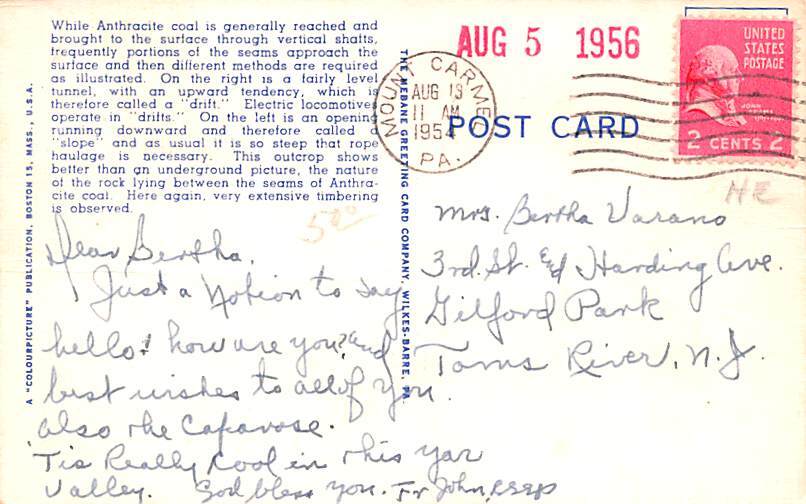 While Anthracite coal is generally reached and
brought to the surface through vertical shafts,
frequently portions of the seams approach the
surface and then different methods are required
as illustrated. On the right is a fairly level
tunnel, with an upward tendency, which is
therefore called a "drift." Electric locomotives
operate in "drifts." On the left is an opening
running downward and therefore called a
"slope" and as usual it is so steep that rope
haulage is necessary. This outcrop shows
better than an underground picture, the nature
of the rock lying between the seams of Anthra-
cite coal. Here again, very extensive timbering
is observed.
A "COLOURPICTURE" PUBLICATION, BOSTON 15, MASS., U.S.A.
THE MEBANE GREETING CARD COMPANY, WILKES-BARRE, PA.
AUG 5 1956
MOUNT CARMEL
AUG 13
11 AM
1954
PA.
POST CARD
UNITED
STATES
POSTAGE
JOHN
ADAMS
2 CENTS 2
HE
Dear Bertha,
Just a Notion to say
hello! how are you? and
best wishes to all of you
also the Capavose.
'Tis Really cool in this yar
Valley. God bless you. Fr John,
Mrs. Bertha Varano
3rd. St. & Harding Ave.
Gilford Park
Toms River, N.J.